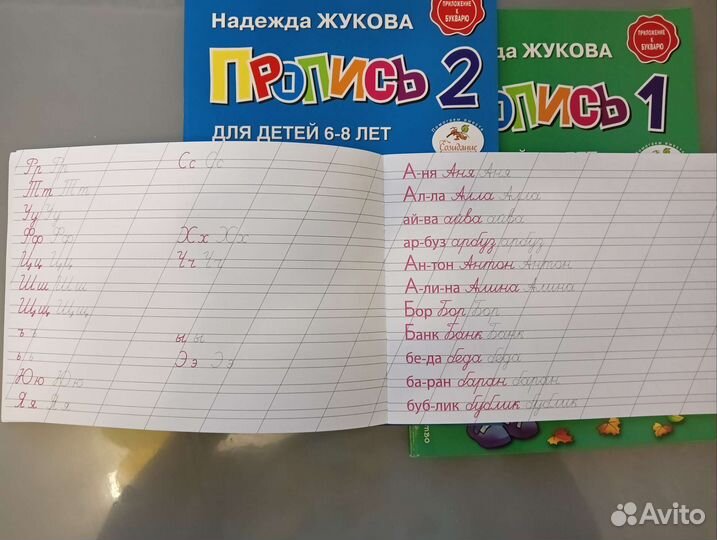 Надежда ЖУКОВА
ПРИЛОЖЕНИЕ К БУКВАРЮ
ПРОПИСЬ 2
ДЛЯ ДЕТЕЙ 6-8 ЛЕТ
Помогаем вместе
Созидание
да ЖУКОВА
ПРИЛОЖЕНИЕ К БУКВАРЮ
ОПИСЬ 1
Рр Рр Сс Сс
Тт Тт
Уу Уу
Фф Фф Хх Хх
Цц Цц Чч Чч
Шш Шш
Щщ Щщ
ъ ъ ы ы
ь ь Ээ Ээ
Юю Юю
Яя Яя
А-ня Аня Аня
Ал-ла Алла Алла
ай-ва айва айва
ар-буз арбуз арбуз
Ан-тон Антон Антон
А-ли-на Алина Алина
Бор Бор Бор
Банк Банк Банк
бе-да беда беда
ба-ран баран баран
буб-лик бублик бублик
Avito